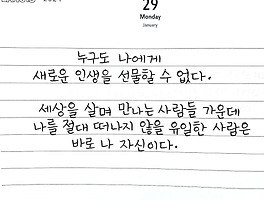 29
Monday
January
누구도 나에게
새로운 인생을 선물할 수 없다.
세상을 살며 만나는 사람들 가운데
나를 절대 떠나지 않을 유일한 사람은
바로 나 자신이다.